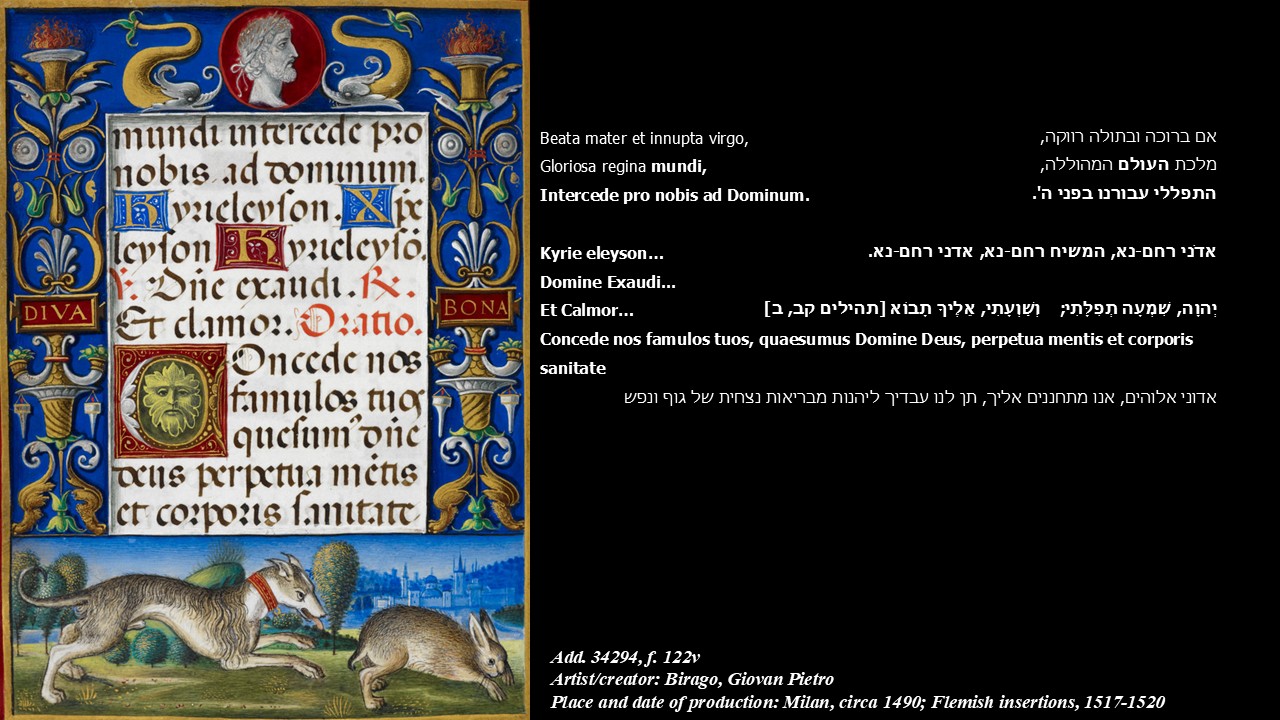 mundi intercede pro
nobis ad dominum.
Kyrieleyson. Xpe
leyson Kyrieleysō.
V. Dñe exaudi. R.
Et clamor. Oratio.
DIVA
BONA
Concede nos
famulos tuos
quesum' dñe
deus perpetua mētis
et corporis sanitate
Beata mater et innupta virgo,
Gloriosa regina mundi,
Intercede pro nobis ad Dominum.
אם ברוכה ובתולה רווקה,
מלכת העולם המהוללה,
התפללי עבורנו בפני ה'.
Kyrie eleyson…
אדֹני רחם-נא, המשיח רחם-נא, אדני רחם-נא.
Domine Exaudi…
Et Calmor…
יְהוָה, שִׁמְעָה תְפִלָּתִי; וְשַׁוְעָתִי, אֵלֶיךָ תָבוֹא [תהילים קב, ב]
Concede nos famulos tuos, quaesumus Domine Deus, perpetua mentis et corporis
sanitate
אדוני אלוהים, אנו מתחננים אליך, תן לנו עבדיך ליהנות מבריאות נצחית של גוף ונפש
Add. 34294, f. 122v
Artist/creator: Birago, Giovan Pietro
Place and date of production: Milan, circa 1490; Flemish insertions, 1517-1520